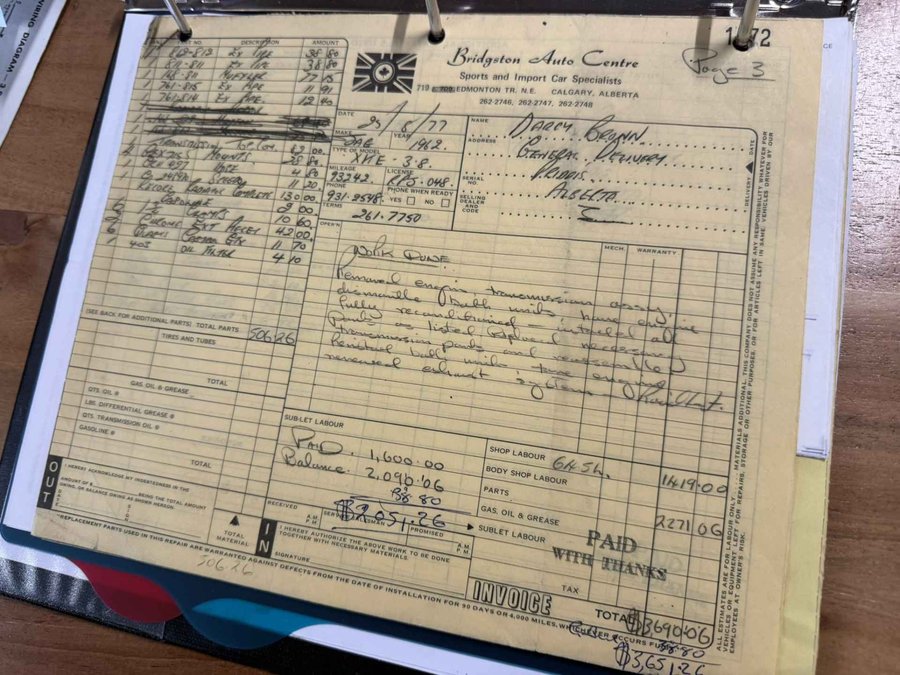 WIRING DIAGRAM - 3.8
1872
Page 3
Bridgston Auto Centre
Sports and Import Car Specialists
EDMONTON TR. N.E. CALGARY, ALBERTA
262-2746, 262-2747, 262-2748
PART NO. DESCRIPTION AMOUNT
Ex Pipe 38 80
811-811 Ex Pipe 38 80
1 MUFFLER 77 15
1 761-815 Ex Pipe 11 91
1 761-814 Ex Pipe 12 40
Transmission 82 00
Mounts 28 80
Hose 4 80
11 20
130 00
9 00
10 60
42 00
11 70
1 403 OIL FILTER 4 10
DATE 29/5/77
MAKE JAG YEAR 1962
TYPE OR MODEL XKE 3.8.
MILEAGE 93242 LICENSE
PHONE 931-2598 PHONE WHEN READY
YES NO
TERMS 261-7750
NAME Darcy Brown
ADDRESS General Delivery
Priddis
Alberta
SERIAL NO.
SELLING DEALER AND CODE
DELIVERY DATE
OPER'N MECH. WARRANTY
Work Done
Removed engine, transmission assy.,
dismantle both units, have engine
fully reconditioned - installed all
parts as listed. Replaced necessary
transmission parts and reassembled
Refitted both units, tune engine
renewed exhaust system - Road Test.
(SEE BACK FOR ADDITIONAL PARTS) TOTAL PARTS 506.26
TIRES AND TUBES
TOTAL
GAS. OIL & GREASE
QTS. OIL @
LBS. DIFFERENTIAL GREASE @
QTS. TRANSMISSION OIL @
GASOLINE @
TOTAL
OUT
I HEREBY ACKNOWLEDGE MY INDEBTEDNESS IN THE
AMOUNT OF $ BEING THE TOTAL AMOUNT
OWING, OR BALANCE OWING AS SHOWN HEREON.
SIGNED
TOTAL MATERIAL
506.26
SUB-LET LABOUR
Paid 1,600.00
Balance 2,090.06
38.80
$2,051.26
RECEIVED A.M. P.M. SERVICE SALESMAN PROMISED A.M. P.M.
IN
I HEREBY AUTHORIZE THE ABOVE WORK TO BE DONE
TOGETHER WITH NECESSARY MATERIALS.
SIGNATURE
SHOP LABOUR 1419.00
BODY SHOP LABOUR
PARTS 2271.06
GAS. OIL & GREASE
SUBLET LABOUR
PAID
WITH THANKS
TAX
INVOICE
TOTAL $3690.06
38.80
$3,651.26
REPLACEMENT PARTS USED IN THIS REPAIR ARE WARRANTED AGAINST DEFECTS FROM THE DATE OF INSTALLATION FOR 90 DAYS OR 4,000 MILES, WHICHEVER OCCURS FIRST
ALL ESTIMATES ARE FOR LABOUR ONLY, MATERIALS ADDITIONAL. THIS COMPANY DOES NOT ASSUME ANY RESPONSIBILITY WHATEVER FOR
VEHICLES OR EQUIPMENT LEFT FOR REPAIRS, STORAGE OR OTHER PURPOSES, OR FOR ARTICLES LEFT IN SAME VEHICLES DRIVEN BY OUR
EMPLOYEES AT OWNER'S RISK.